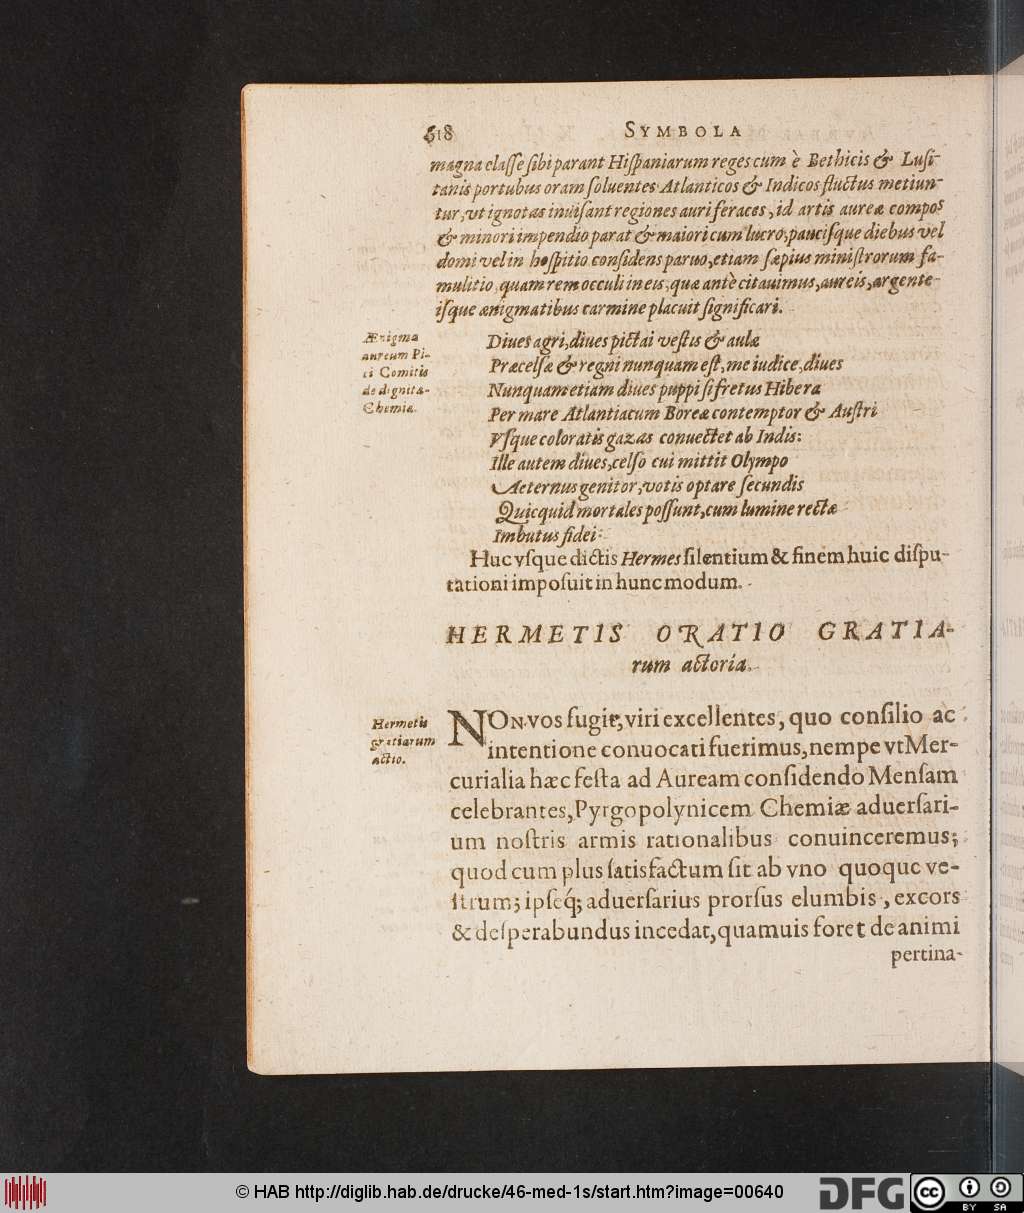 618
SYMBOLA
magna classe sibi parant Hispaniarum reges cum è Bethicis & Lusi-
tanis portubus oram soluentes Atlanticos & Indicos fluctus metiun-
tur, vt ignotas inuisant regiones auri feraces, id artis aureæ compos
& minori impendio parat & maiori cum lucro, paucisque diebus vel
domi vel in hospitio considens paruo, etiam sæpius ministrorum fa-
mulitio, quam rem occuli in eis, quæ antè citauimus, aureis, argente-
isque ænigmatibus carmine placuit significari.
Ænigma
aureum Pi-
ci Comitis
de dignita-
Chemiæ.
Diues agri, diues pictai vestis & aulæ
Præcelsæ & regni nunquam est, me iudice, diues
Nunquam etiam diues puppi si fretus Hibera
Per mare Atlantiacum Boreæ contemptor & Austri
Vsque coloratis gazas conuectet ab Indis:
Ille autem diues, celso cui mittit Olympo
Aeternus genitor, votis optare secundis
Quicquid mortales possunt, cum lumine rectæ
Imbutus fidei.
Huc vsque dictis Hermes silentium & finem huic dispu-
tationi imposuit in hunc modum.
HERMETIS ORATIO GRATIA-
rum actoria.
Hermetis
gratiarum
actio.
NON vos fugit, viri excellentes, quo consilio ac
intentione conuocati fuerimus, nempe vt Mer-
curialia hæc festa ad Auream considendo Mensam
celebrantes, Pyrgopolynicem Chemiæ aduersari-
um nostris armis rationalibus conuinceremus;
quod cum plus satisfactum sit ab vno quoque ve-
strum; ipseq́; aduersarius prorsus elumbis, excors
& desperabundus incedat, quamuis foret de animi
pertina-
© HAB http://diglib.hab.de/drucke/46-med-1s/start.htm?image=00640
DFG
cc
BY SA